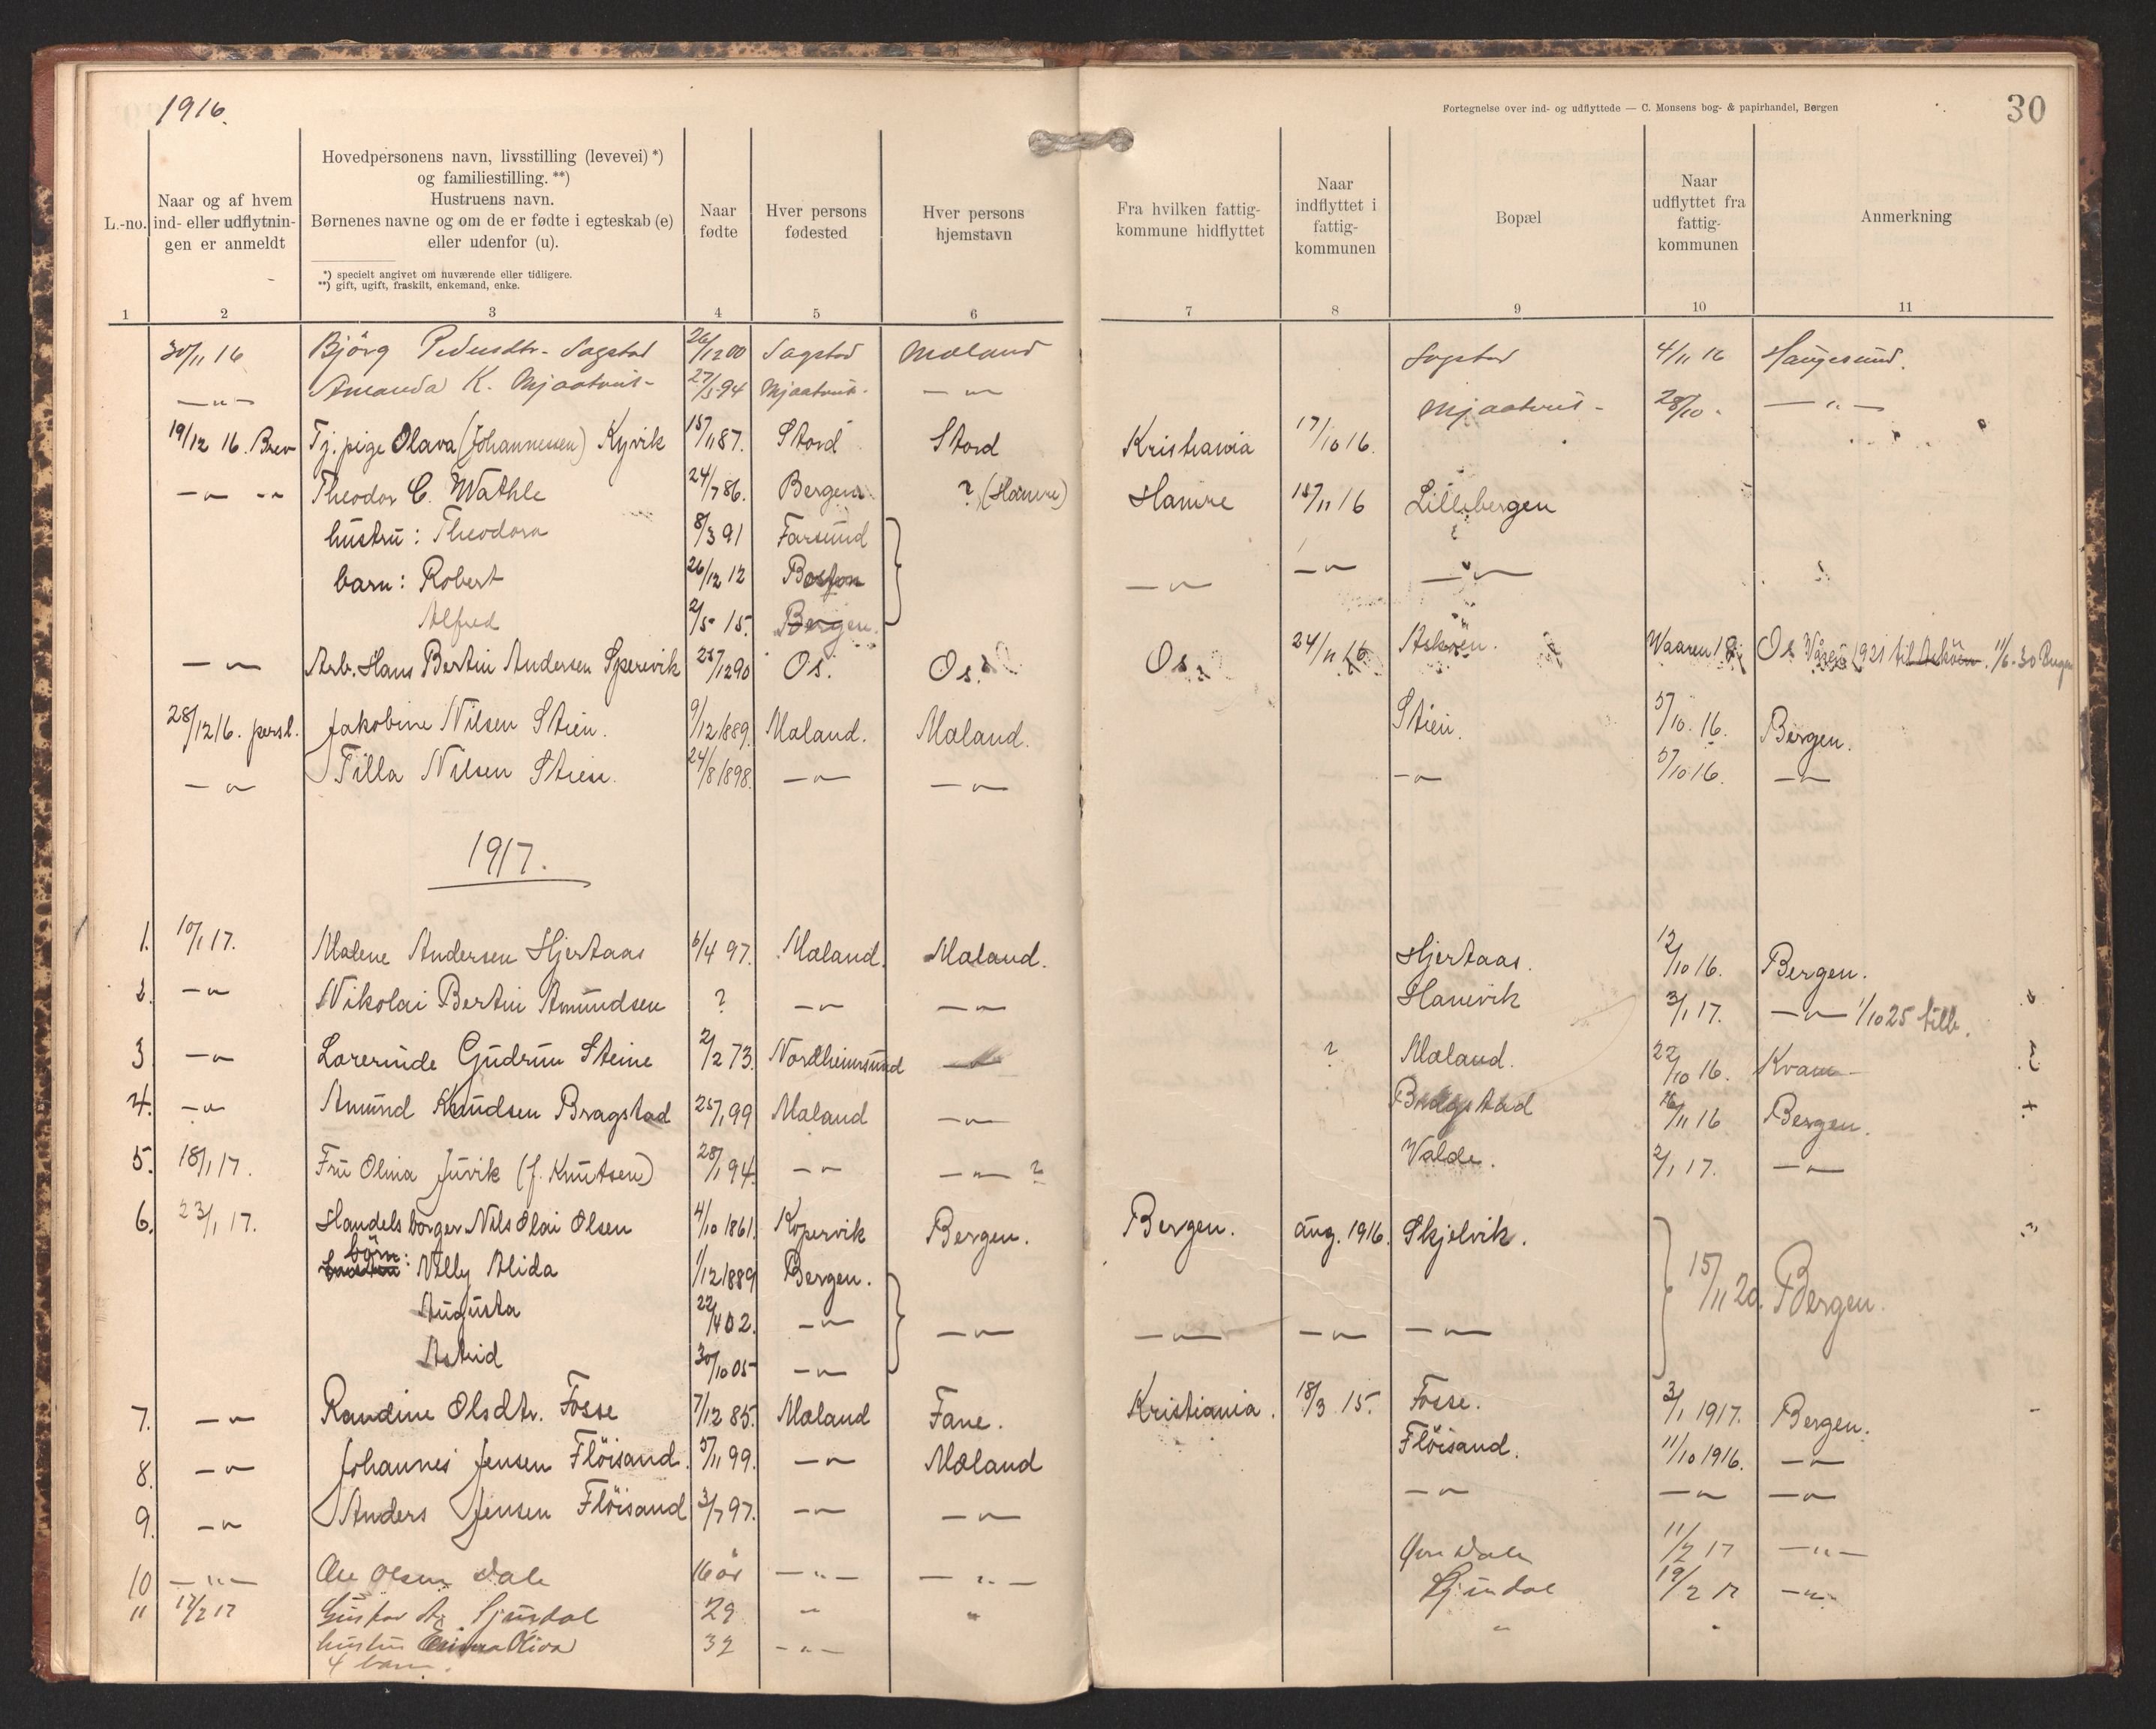 1916.
Fortegnelse over ind- og udflyttede — C. Monsens bog- & papirhandel, Bergen
30
L.-no.
Naar og af hvem ind- eller udflytnin-gen er anmeldt
Hovedpersonens navn, livsstilling (levevei) *)
og familiestilling. **)
Hustruens navn.
Børnenes navne og om de er fødte i egteskab (e)
eller udenfor (u).
*) specielt angivet om nuværende eller tidligere.
**) gift, ugift, fraskilt, enkemand, enke.
Naar fødte
Hver persons fødested
Hver persons hjemstavn
Fra hvilken fattig-kommune hidflyttet
Naar indflyttet i fattig-kommunen
Bopæl
Naar udflyttet fra fattig-kommunen
Anmerkning
1 2 3 4 5 6 7 8 9 10 11
30/11 16 Björg Pedersdtr. Sagstad 26/12 00 Sagstad Mæland Sagstad 4/11 16 Haugesund.
— " — Amanda K. Mjaatveit 27/5 94 Mjaatveit — " — Mjaatveit 28/10 — " —
19/12 16. Brev Tj. pige Olava (Johannessen) Kyvik 15/11 87. Stord Stord Kristiania 17/10 16.
— " — Theodor C. Wathle 24/7 86. Bergen ? (Hamre) Hamre 15/11 16 Lillebergen
hustru: Theodora 8/3 91 Farsund
barn: Robert 26/12 12 Boston — " — — " — — " —
Alfred 2/5 15. Bergen.
— " — Arb. Hans Bertin Andersen Sperevik 25/12 90 Os. Os. Os 24/11 16 Askøen. Vaaren 18 Os Våren 1921 til Askøen. 11/6-30 Bergen
28/12 16. persl. Jakobine Nilsen Stien. 9/12 1889. Mæland. Mæland. Stien. 5/10. 16. Bergen.
— " — Tilla Nilsen Stien. 24/8 1898. — " — — " — — " — 5/10 16. — " —
1917.
1. 10/1 17. Malene Andersen Hjertaas 6/4 97. Mæland. Mæland. Hjertaas. 12/10 16. Bergen.
2. — " — Nikolai Bertin Amundsen ? — " — — " — Hanevik 3/1 17. — " — 1/10 25 tilb.
3 — " — Lærerinde Gudrun Steine 2/2 73. Nordheimsund — ? Mæland. 22/10 16. Kvam
4. — " — Amund Knudsen Bragstad 25/1 99 Mæland — " — Bragstad 16/11 16 Bergen.
5. 18/1 17. Fru Olina Juvik (f. Knutsen) 28/1 94. — " — — " — ? Valde. 2/1 17. — " —
6. 23/1 17. Handelsborger Nils Olai Olsen 4/10 1861. Kopervik Bergen. Bergen. aug. 1916. Skjelvik.
börn: Nelly Alida 1/12 1889 Bergen. 15/11 20. Bergen.
Augusta 22/4 02. — " — — " — — " — — " — — " —
Astrid 30/10 05 — " —
7. — " — Randine Olsdtr. Fosse 7/12 85. Mæland Fane. Kristiania. 18/3 15. Fosse. 3/1 1917. Bergen.
8. — " — Johannes Jensen Flöisand. 5/11 99. — " — Mæland Flöisand. 11/10 1916. — " —
9. — " — Anders Jensen Flöisand 3/7 97. — " — — " — — " — — " — — " —
10 — " — Ole Olsen Dale 16 år — " — — " — Øvre Dale 11/2 17 — " —
11 17/2 17 Gustav A. Sjursdal 29 " " 19/2 17 — " —
hustru Oliva 32 — " — " "
4 barn.